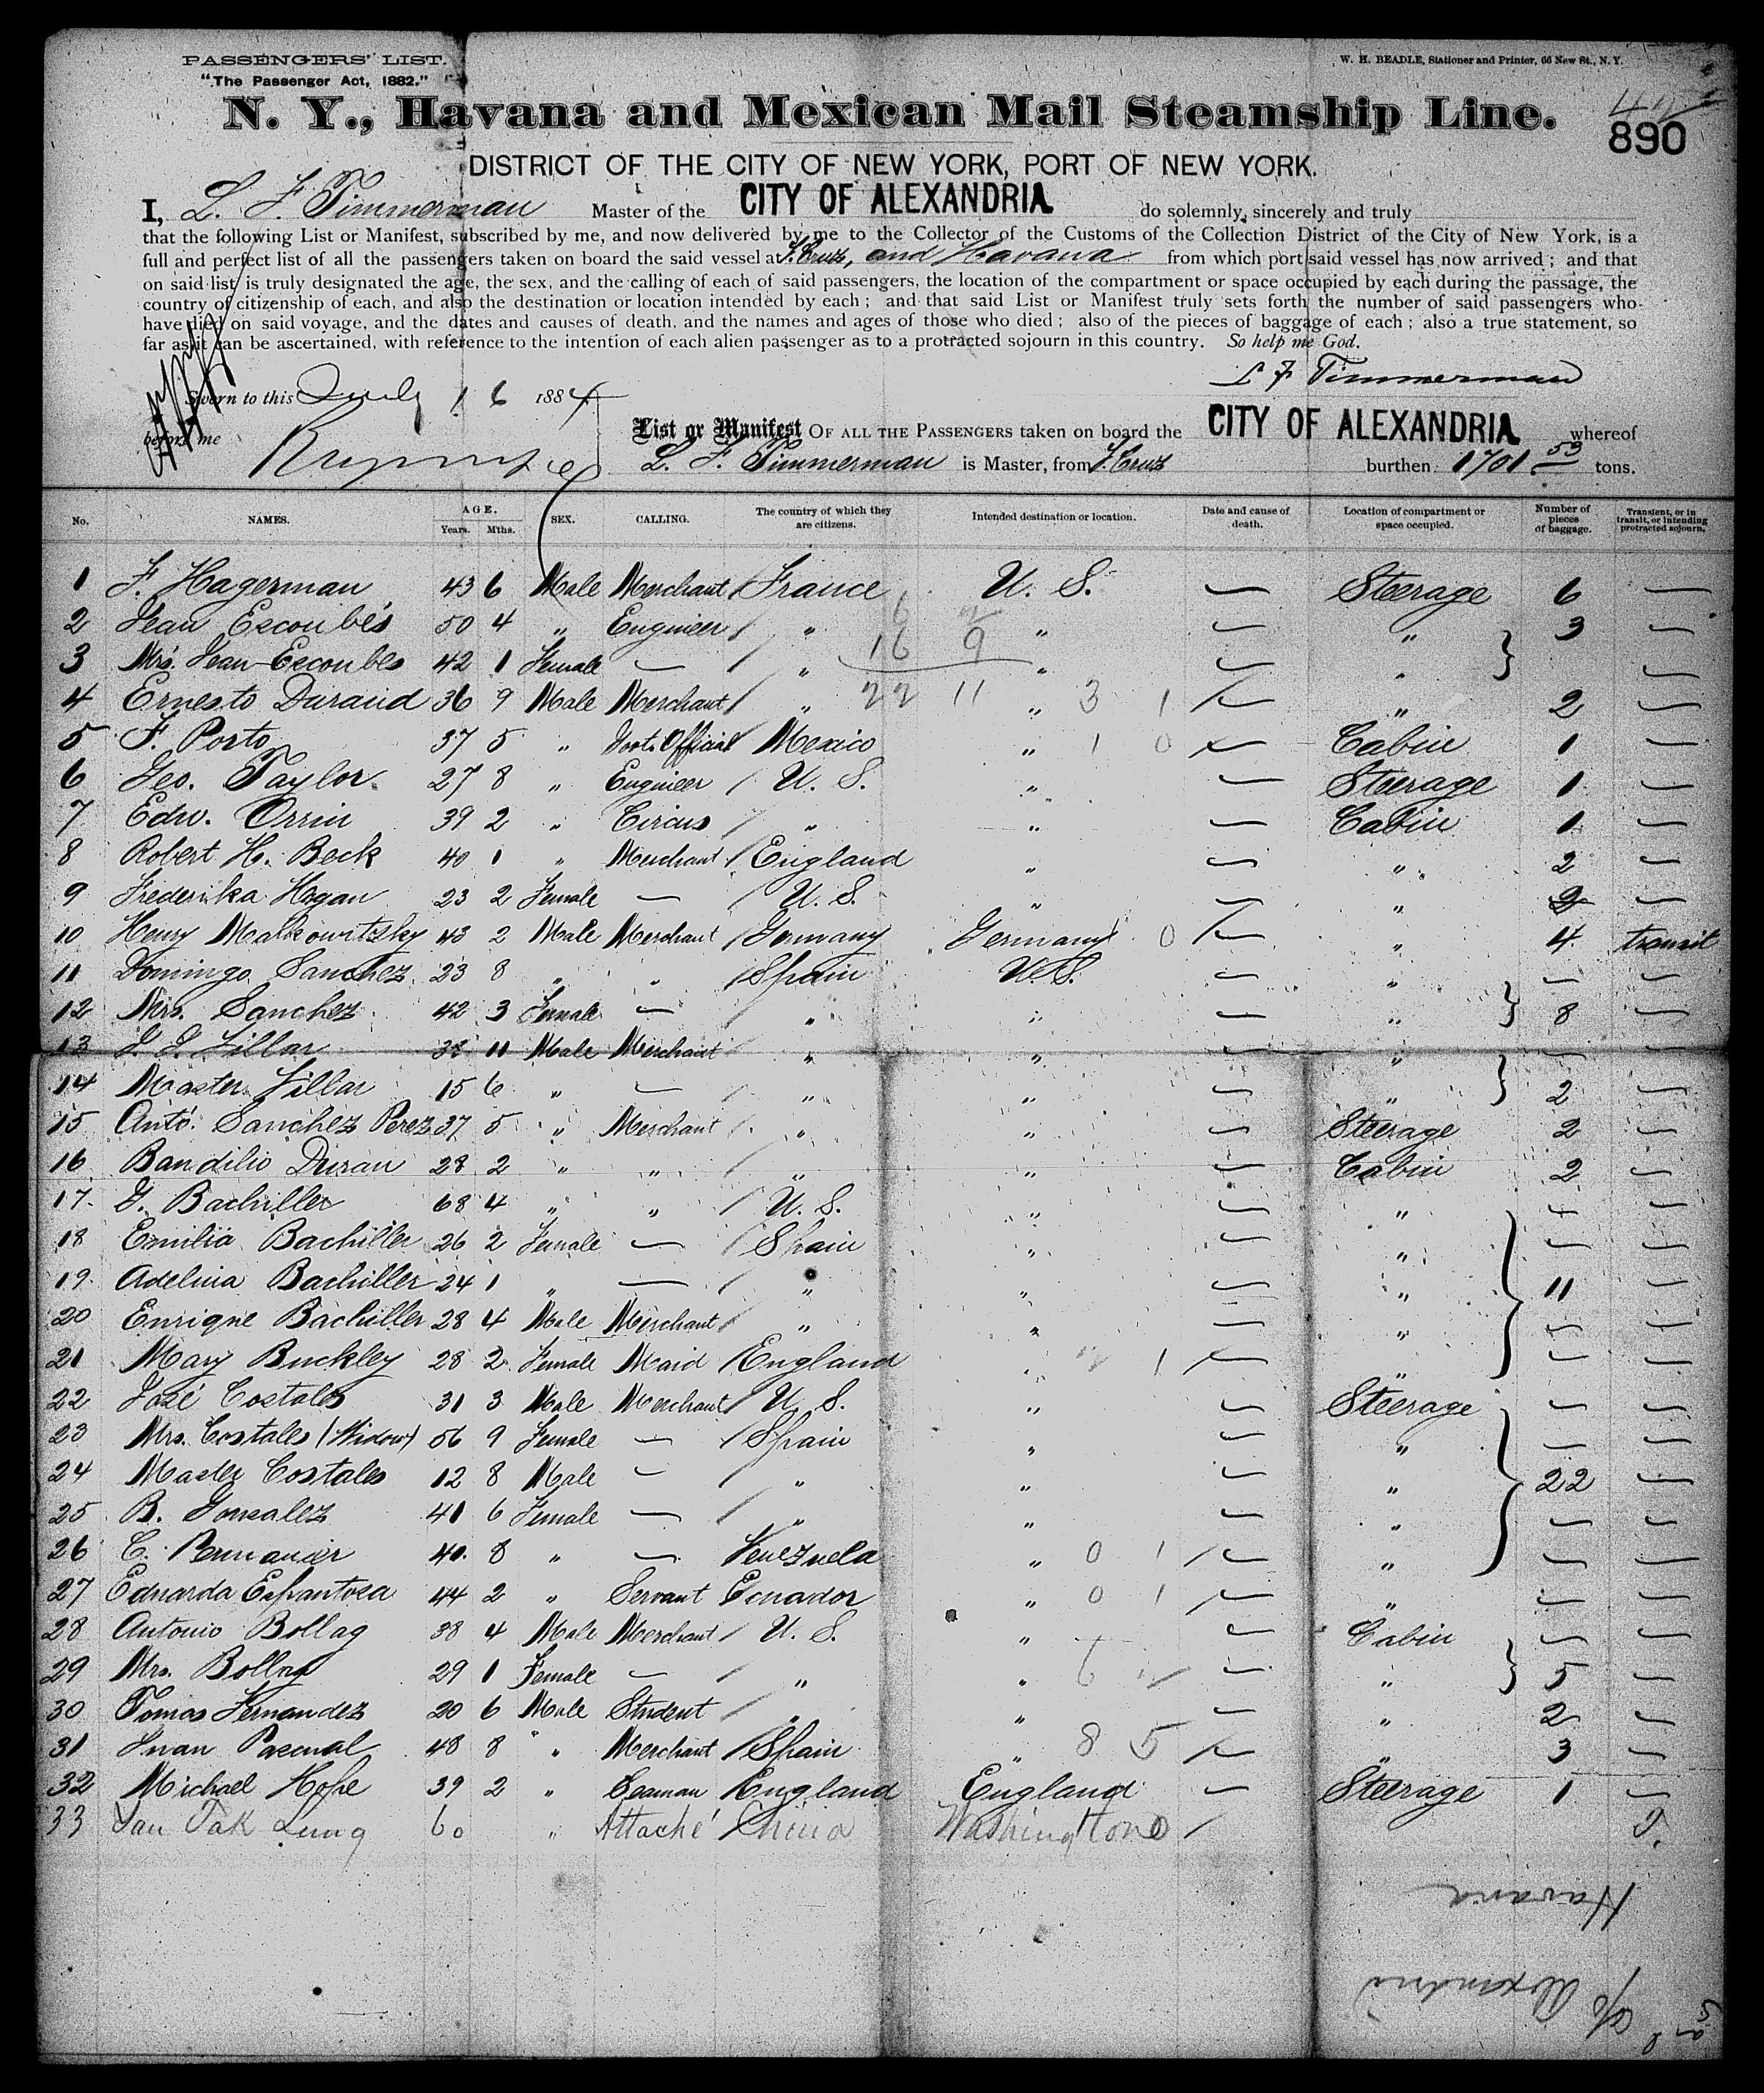 PASSENGERS' LIST.
"The Passenger Act, 1882."
W. H. BEADLE, Stationer and Printer, 66 New St., N. Y.
N. Y., Havana and Mexican Mail Steamship Line.
890
DISTRICT OF THE CITY OF NEW YORK, PORT OF NEW YORK.
I, L. F. Timmerman Master of the CITY OF ALEXANDRIA do solemnly, sincerely and truly
that the following List or Manifest, subscribed by me, and now delivered by me to the Collector of the Customs of the Collection District of the City of New York, is a
full and perfect list of all the passengers taken on board the said vessel at V. Cruz, and Havana from which port said vessel has now arrived; and that
on said list is truly designated the age, the sex, and the calling of each of said passengers, the location of the compartment or space occupied by each during the passage, the
country of citizenship of each, and also the destination or location intended by each; and that said List or Manifest truly sets forth the number of said passengers who
have died on said voyage, and the dates and causes of death, and the names and ages of those who died; also of the pieces of baggage of each; also a true statement, so
far as it can be ascertained, with reference to the intention of each alien passenger as to a protracted sojourn in this country. So help me God.
L F Timmerman
Sworn to this July 16 1884
before me
List or Manifest OF ALL THE PASSENGERS taken on board the CITY OF ALEXANDRIA whereof
L. F. Timmerman is Master, from V. Cruz burthen 1701 53 tons.
No. NAMES. AGE. Years. Mths. SEX. CALLING. The country of which they are citizens. Intended destination or location. Date and cause of death. Location of compartment or space occupied. Number of pieces of baggage. Transient, or in transit, or intending protracted sojourn.
1 F. Hagerman 43 6 Male Merchant France U. S. — Steerage 6 —
2 Jean Escoubés 50 4 " Engineer " " — " 3 —
3 Mrs. Jean Escoubes 42 1 Female — " " — " —
4 Ernesto Duraud 36 9 Male Merchant " " — " 2 —
5 F. Porto 37 5 " Govt. Official Mexico " — Cabin 1 —
6 Geo. Taylor 27 8 " Engineer U. S. " — Steerage 1 —
7 Edw. Orrin 39 2 " Circus " " — Cabin 1 —
8 Robert H. Beck 40 1 " Merchant England " — " 2 —
9 Frederika Hagan 23 2 Female — U. S. " — " 2 —
10 Henry Malkowitzky 43 2 Male Merchant Germany Germany — " 4 transit
11 Domingo Sanchez 23 8 " " Spain U. S. — " — —
12 Mrs. Sanchez 42 3 Female — " " — " 8 —
13 J. J. Villar 38 11 Male Merchant " " — " — —
14 Master Villar 15 6 " — " " — " 2 —
15 Anto. Sanchez Perez 37 5 " Merchant " " — Steerage 2 —
16 Bandilio Duran 28 2 " " " " — Cabin 2 —
17 A. Bachiller 68 4 " " U. S. " — " — —
18 Emilia Bachiller 26 2 Female — Spain " — " — —
19 Adelina Bachiller 24 1 " — " " — " 11 —
20 Enrique Bachiller 28 4 Male Merchant " " — " — —
21 Mary Buckley 28 2 Female Maid England " — " — —
22 José Costales 31 3 Male Merchant U. S. " — Steerage — —
23 Mrs. Costales (Widow) 56 9 Female — Spain " — " — —
24 Master Costales 12 8 Male — " " — " 22 —
25 B. Gonzalez 41 6 Female — " " — " — —
26 C. 40 8 " — Venezuela " — " — —
27 Eduarda Espantosa 44 2 " Servant Ecuador " — " — —
28 Antonio Bollag 38 4 Male Merchant U. S. " — Cabin — —
29 Mrs. Bollag 29 1 Female — " " — " 5 —
30 Tomas Fernandez 20 6 Male Student " " — " 2 —
31 Juan Pascual 48 8 " Merchant Spain " — " 3 —
32 Michael Hope 39 2 " Seaman England England — Steerage 1 —
33 Yau Tak Lung 60 " Attaché China Washington
Havana
Alexandria